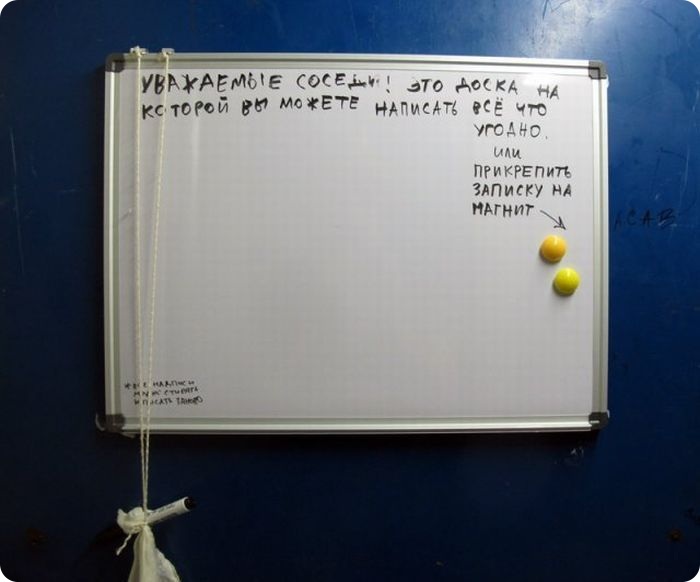 УВАЖАЕМЫЕ СОСЕДИ! ЭТО ДОСКА НА
КОТОРОЙ ВЫ МОЖЕТЕ НАПИСАТЬ ВСЁ ЧТО
УГОДНО.
ИЛИ
ПРИКРЕПИТЬ
ЗАПИСКУ НА
МАГНИТ
ACAB
ВСЕ НАДПИСИ
МОЖНО СТИРАТЬ
И ПИСАТЬ ЗАНОВО